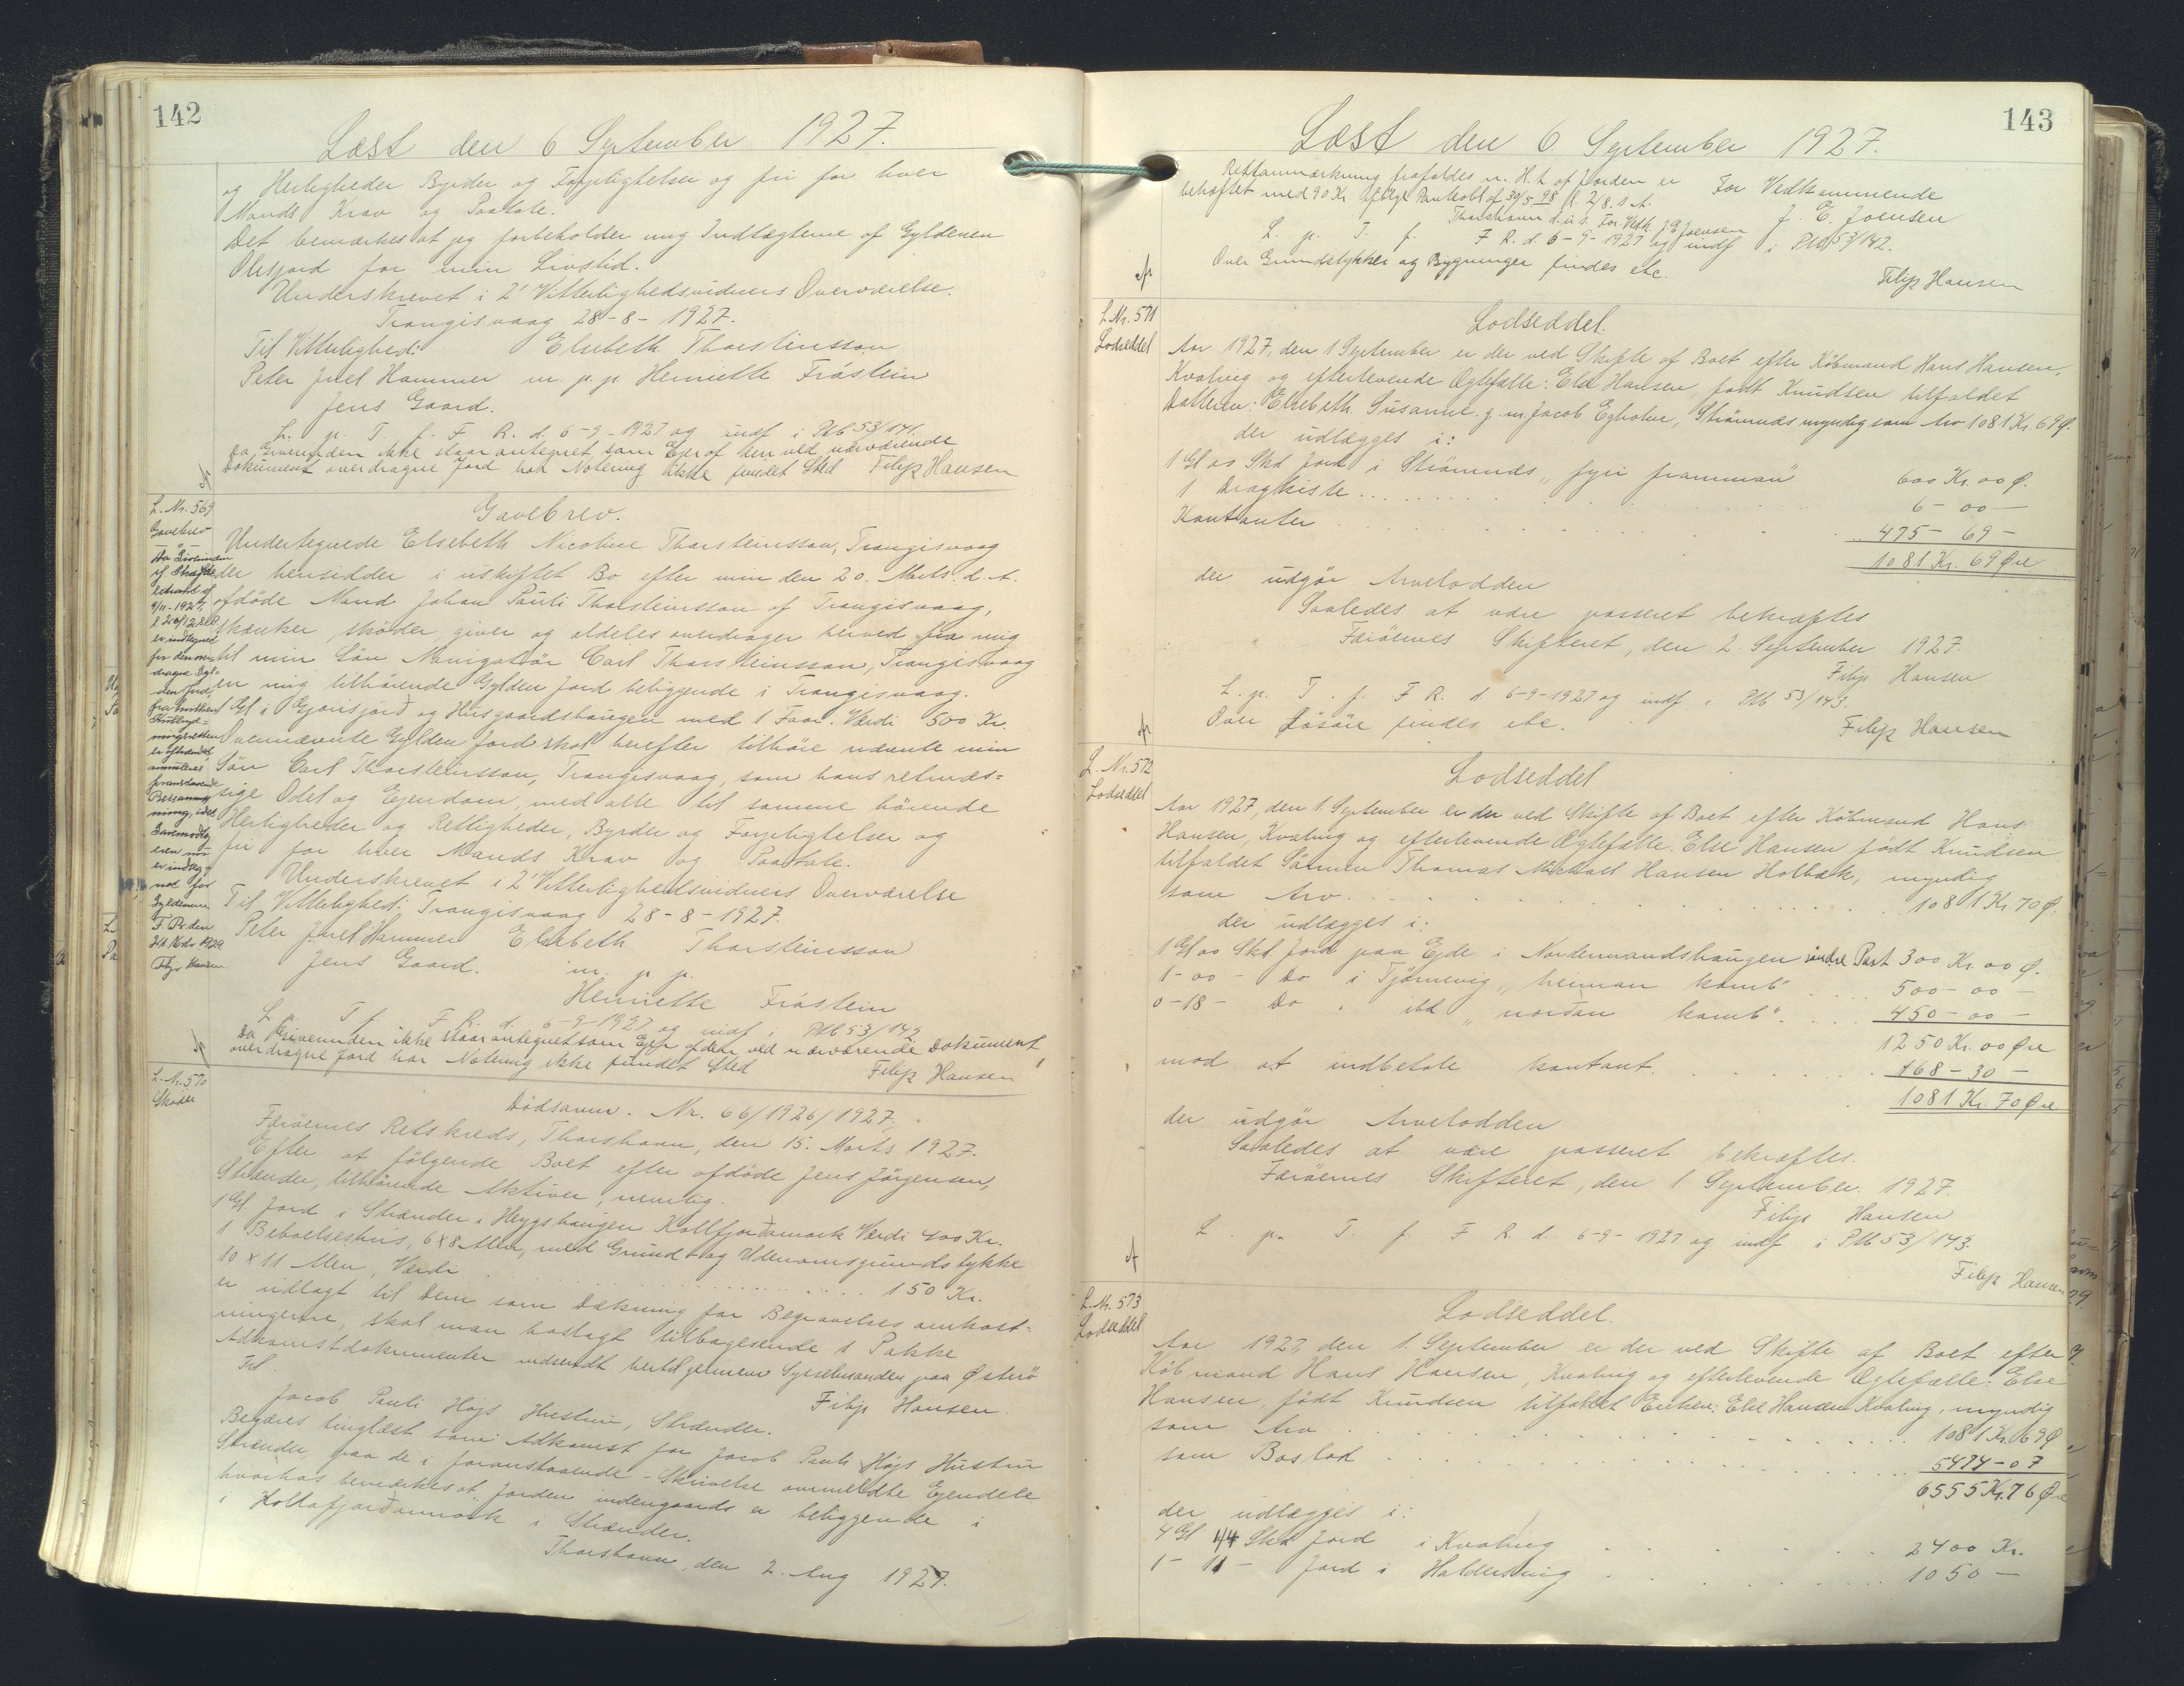 142
Læst den 6 September 1927.
og Herligheder Byrder og Forpligtelser og fri for hver
Mands Krav og Paatale.
Det bemærkes at jeg forbeholder mig Indtægterne af Gyldenen
Olesjord for min Livstid.
Underskrevet i 2' Vitterlighedsvidners Overværelse.
Trangisvaag 28-8-1927.
Til Vitterlighed: Elsebeth Thorsteinsson
Peter Juel Hammer m. p. p. Henriette Fråstein
Jens Gaard.
L. p. T. f. F. R. d. 6-9-1927 og indf i Ptb 53/141.
Da Giverinden ikke staar antegnet som Ejer af den ved nærværende
Dokument overdragne Jord har Notering ikke fundet Sted Filip Hansen
L. Nr. 569
Gavebrev
Gavebrev.
Undertegnede Elsebeth Nicoline Thorsteinsson, Trangisvaag
der hensidder i uskiftet Bo efter min den 20. Marts d. A.
afdöde Mand Johan Pauli Thorsteinsson af Trangisvaag,
skænker, skøder, giver og aldeles overdrager herved fra mig
til min Sön Navigatör Carl Thorsteinsson, Trangisvaag
en mig tilhörende Gylden Jord beliggende i Trangisvaag.
1 Gl i Gjansjørd og Husgaardshaugen med 1 Faar. Værdi 500 Kr.
Ovennævnte Gylden Jord skal herefter tilhöre nævnte min
Sön Carl Thorsteinsson, Trangisvaag, som hans retmæs=
sige Odel og Ejendom, med alle til samme hörende
Herligheder og Rettigheder, Byrder og Forpligtelser og
fri for hver Mands Krav og Paatale.
Underskrevet i 2' Vitterlighedsvidners Overværelse
Til Vitterlighed: Trangisvaag 28-8-1927.
Peter Juel Hammer Elsebeth Thorsteinsson
Jens Gaard. m. p. p.
Henriette Fråstein
L. p. T. f. F. R. d. 6-9-1927 og indf i Ptb 53/142
Da Giverinden ikke staar antegnet som Ejer af den ved nærværende Dokument
overdragne Jord har Notering ikke fundet Sted
Filip Hansen
er indteg=
net for
Gyldenen
F. R. den
Filip Hansen
L. Nr. 570
Skøder
Dödsanm. Nr. 66/1926/1927.
Færöernes Retskreds, Thorshavn, den 15. Marts 1927.
Efter at fölgende Boet efter afdöde Jens Jörgensen,
Strænder, tilhörende Aktiver, nemlig.
1 Gl Jord i Strænder i Heygshaugen Kollfjorðamark Værdi 400 Kr.
1 Beboelseshus, 6 x 8 Alen, med Grund og Udenomsgrundstykke
10 x 11 Alen, Værdi . . . . . . . . 150 Kr.
er udlagt til Dem som Dækning for Begravelses omkost=
ningerne, skal man hoslagt tilbagesende 1 Pakke
Adkomstdokumenter indsendt hertil gennem Sysselmanden paa Østerö
Filip Hansen.
Til
Jacob Pauli Højs Hustru, Strænder.
Begæres tinglæst som Adkomst for Jacob Pauli Højs Hustru
Strænder, paa de i foranstaaende Skrivelse ommeldte Ejendele
hvorhos bemærkes at Jorden indengaards er beliggende i
i Kollafjorðamark i Strænder.
Thorshavn, den 2. Aug 1927.
143
Læst den 6 September 1927.
Rettanmærkning frafaldes m. H. t. at Jorden er
behæftet med 90 Kr. Ifölge Panteobl af 30/5 98 l. 2/8. s. A.
Thorshavn d. u. s. For Vedk. J. E. Joensen
For Vedkommende
J. E. Joensen
L. p. T. f. F. R. d. 6-9-1927 og indf i Ptb 53/142.
Over Grundstykker og Bygninger findes etc.
Filip Hansen
L. Nr. 571
Lodseddel
Lodseddel.
Aar 1927, den 1 September er der ved Skifte af Boet efter Köbmand Hans Hansen,
Kvalvig og efterlevende Ægtefælle: Else Hansen, født Knudsen tilfaldet
Datteren: Elsebeth Susanne g. m. Jacob Egholm, Strömnæs myndig som Arv 1081 Kr. 69 Ø.
der udlægges i:
1 Gl 00 Skd Jord i Strömnæs „fyri framman" 600 Kr. 00 Ø.
1 Dragkiste . . . . . . 6 - 00 -
Kontanter . . . . . . 475 - 69 -
1081 Kr. 69 Øre
der udgör Arvelodden
Saaledes at være passeret bekræftes
Færöernes Skifteret, den 2. September 1927.
Filip Hansen
L. p. T. f. F R. d. 6-9-1927 og indf i Ptb 53/143.
Over Lösöre findes etc.
Filip Hansen
L. Nr. 572
Lodseddel
Lodseddel
Aar 1927, den 1. September er der ved Skifte af Boet efter Köbmand Hans
Hansen, Kvalvig og efterlevende Ægtefælle. Else Hansen født Knudsen
tilfaldet Sönnen Thomas Michael Hansen Holbæk, myndig
som Arv . . . . . . 1081 Kr 70 Ø.
der udlægges i:
1 Gl 00 Skd Jord paa Ejde i Nordenmandshaugen søndre Part 300 Kr. 00 Ø.
1 - 00 - Do i Tjörnevig „heiman kamb" . . 500 - 00 -
0 - 18 - Do " ibd „norðan kamb". . . 450 - 00 -
1250 Kr. 00 Øre
mod at indbetale kontant. . . . . . 168 - 30 -
1081 Kr. 70 Øre
der udgör Arvelodden
Saaledes at være passeret bekræftes.
Færöernes Skifteret, den 1 September. 1927.
Filip Hansen
L. p. T. f. F R. d. 6-9-1927 og indf i Ptb 53/143.
Filip Hansen
L. Nr. 573
Lodseddel
Lodseddel.
Aar 1927, den 1. September er der ved Skifte af Boet efter
Köbmand Hans Hansen, Kvalvig og efterlevende Ægtefælle: Else
Hansen, født Knudsen tilfaldet Enken: Else Hansen Kvalvig, myndig
som Arv . . . . . . 1081 Kr. 69 Ø
som Boslod . . . . . . 5474 - 07
6555 Kr. 76 Øre
der udlægges i:
4 Gl 1/4 Skd Jord i Kvalvig . . . . . . 2400 Kr.
1 - 11 - Jord i Haldersvig . . . . . . 1050 -